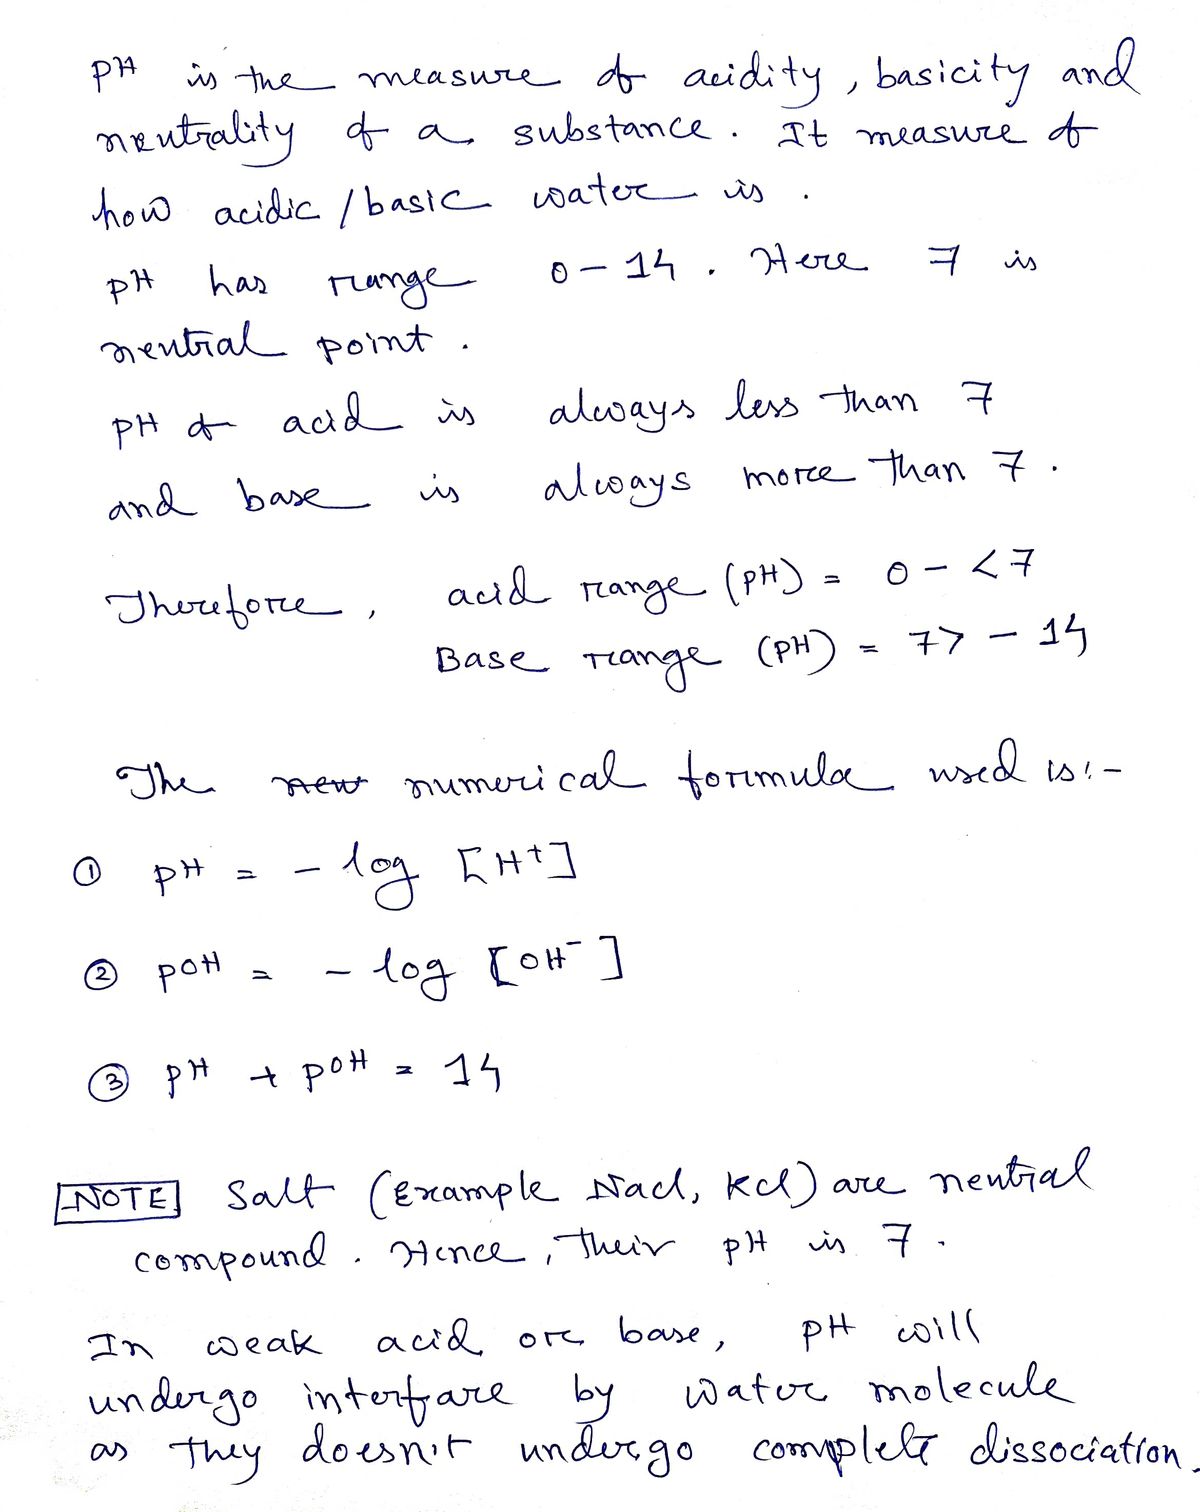 pH is the measure of acidity, basicity and
neutrality of a substance. It measure of
how acidic / basic water is.
pH has range 0 - 14. Here 7 is
neutral point.
pH of acid is always less than 7
and base is always more than 7.
Therefore, acid range (pH) = 0 - <7
Base range (pH) = 7> - 14
The new numerical formula used is:-
① pH = - log [H⁺]
② pOH = - log [OH⁻]
③ pH + pOH = 14
NOTE Salt (Example NaCl, KCl) are neutral
compound. Hence, their pH is 7.
In weak acid or base, pH will
undergo interfare by water molecule
as they doesn't undergo complete dissociation.